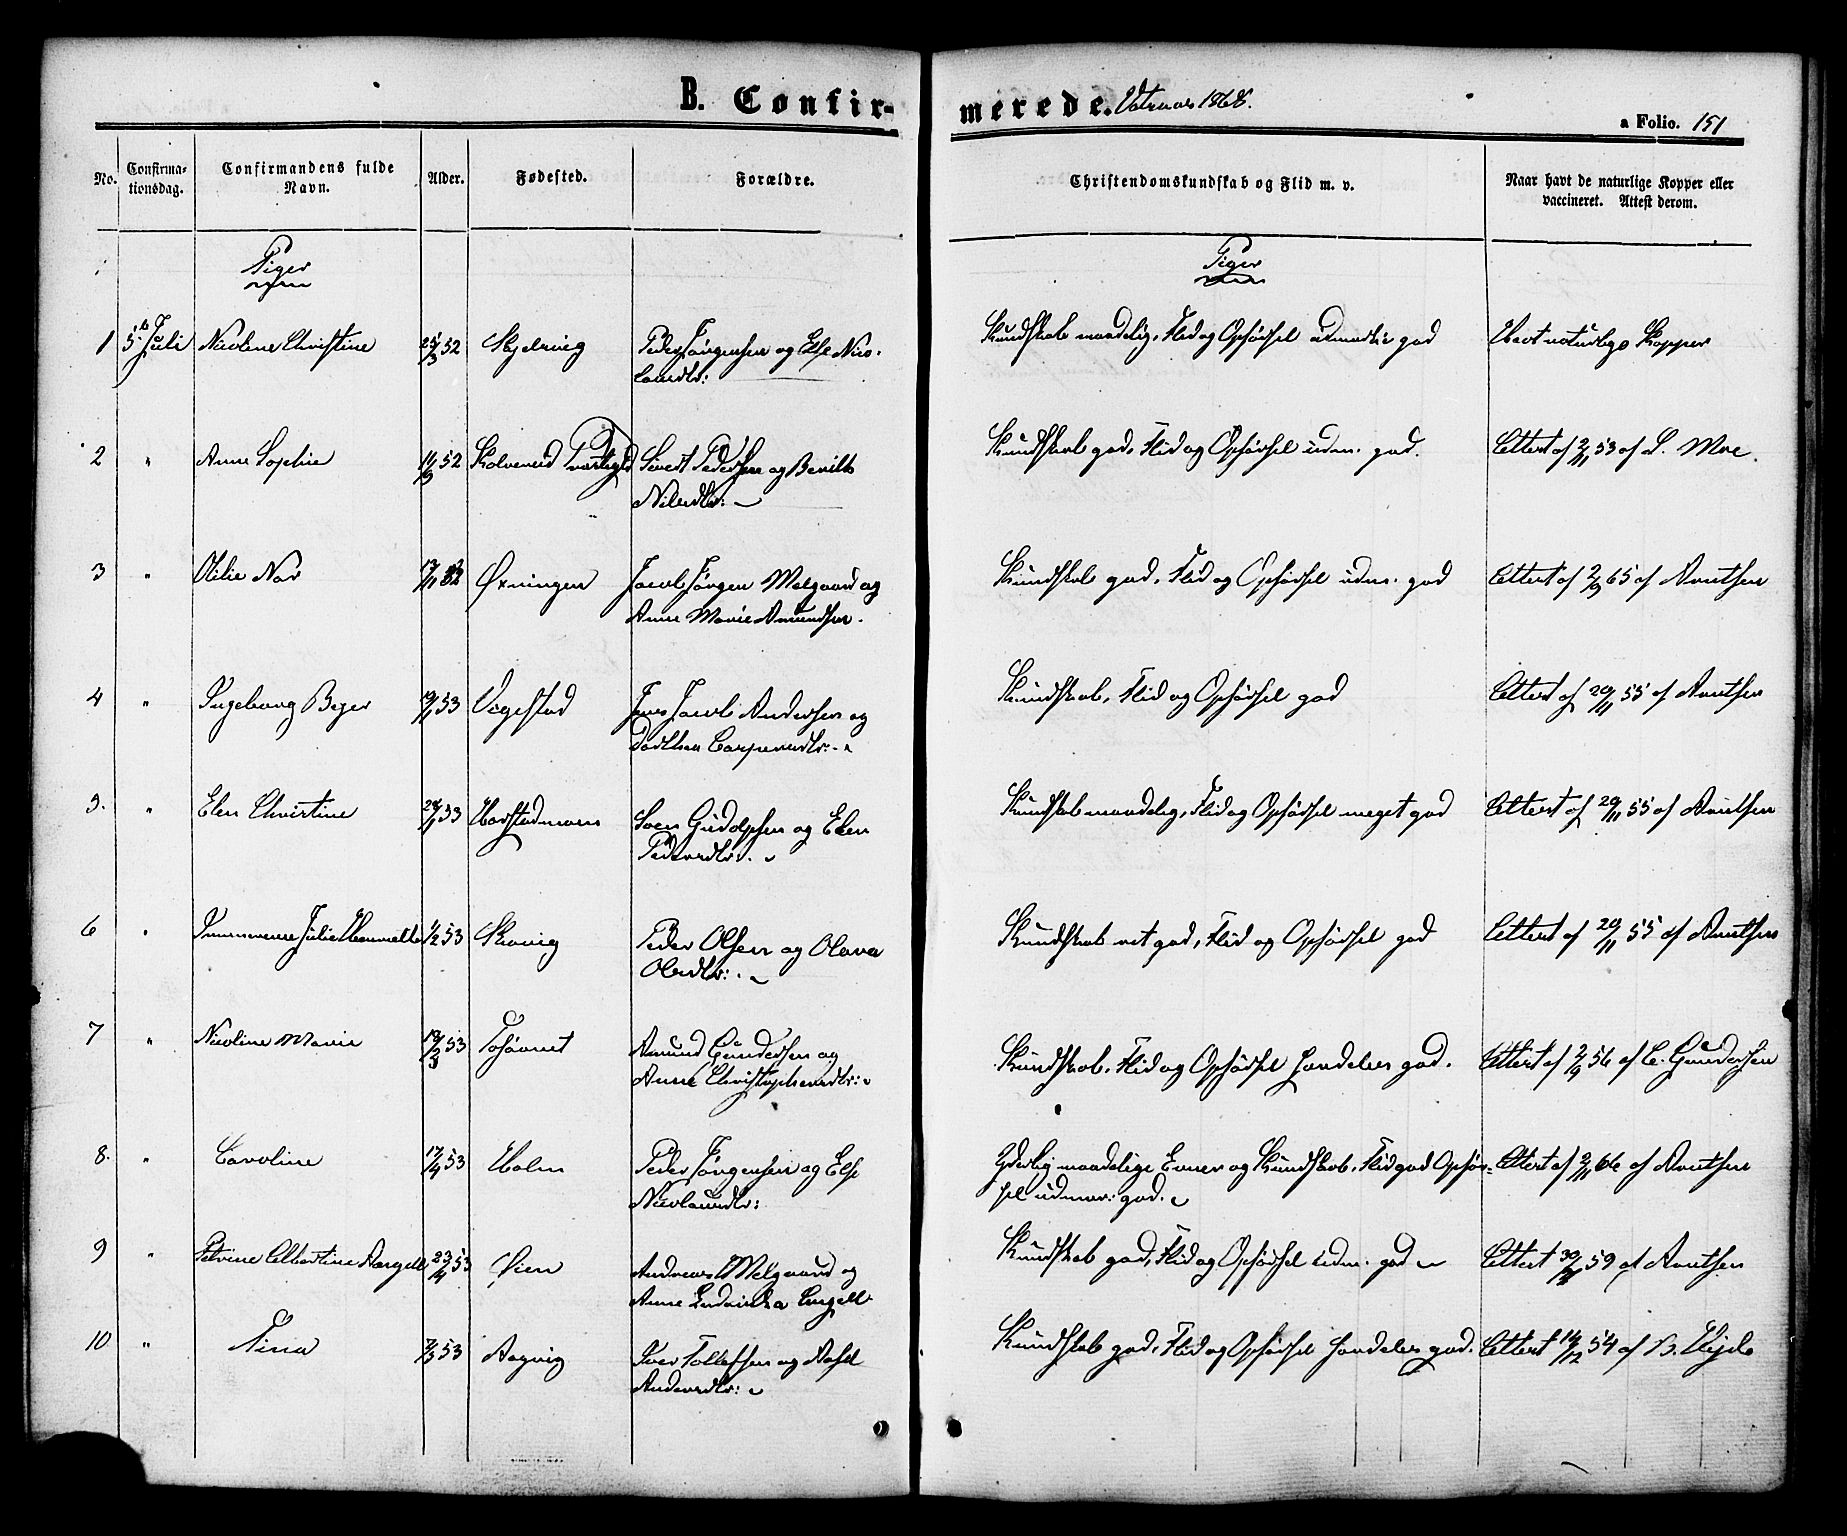 B. Confirmerede. 1868.
a Folio. 151
No. Confirmationsdag. Confirmandens fulde Navn. Alder. Fødested. Forældre. Christendomskundskab og Flid m. v. Naar havt de naturlige Kopper eller vaccineret. Attest derom.
Piger Piger
1 5te Juli Nicoline Christine 25/3 52 Skjelvig Peder Jørgensen og Else Nico-
laisdtr: Kundskab maadelig, Flid og Opførsel udmærket god Havt naturlige Kopper
2 " Anne Sophie 52 Sivert Pedersen og Berith
Nilsdtr: Kundskab god, Flid og Opførsel udm. god. Attest af 2/11 53 af L. Moe.
3 " Otilie Nor 52 Øxningen Jacob Jørgen Melgaard og
Anne Marie Amundsen. Kundskab god, Flid og Opførsel udm. god Attest af 2/9 65 af Knutsen
4 " Ingeborg Beyer 53 Vegestad Jens Jacob Andersen og
Dorthea Caspersdtr: Kundskab, Flid og Opførsel god Attest af 20/11 55 af Knutsen
5. " Elen Christine 53 Havstadmoen Sven Gudolphsen og Elen
Pedersdtr: Kundskab maadelig, Flid og Opførsel meget god Attest af 20/11 55 af Knutsen
6 " Julie 1/2 53 Skovig Peder Olsen og Olava
Olsdtr: Kundskab ret god, Flid og Opførsel god Attest af 20/11 55 af Knutsen
7 " Nicoline Marie 53 Amund Gundersen og
Anne Christophersdtr: Kundskab, Flid og Opførsel særdeles god. Attest af 2/9 56 af C. Gundersen
8. " Caroline 17/4 53 Holm Peder Jørgensen og Else
Nicolaisdtr: Yderlig maadelige Evner og Kundskab. Flid god Opfør-
sel udmær: god. Attest af 2/11 66 af Knutsen
9 " Petrine Albertine Aangell 23/4 53 Øien Andreas Melgaard og
Anne Ludovika Angell Kundskab god, Flid og Opførsel udm. god Attest 59 af Knutsen
10 " Tina 53 Aagvig Iver Tollefsen og Aasel
Andersdtr: Kundskab god, Flid og Opførsel særdeles god. Attest 14/12 54 af B. Heide